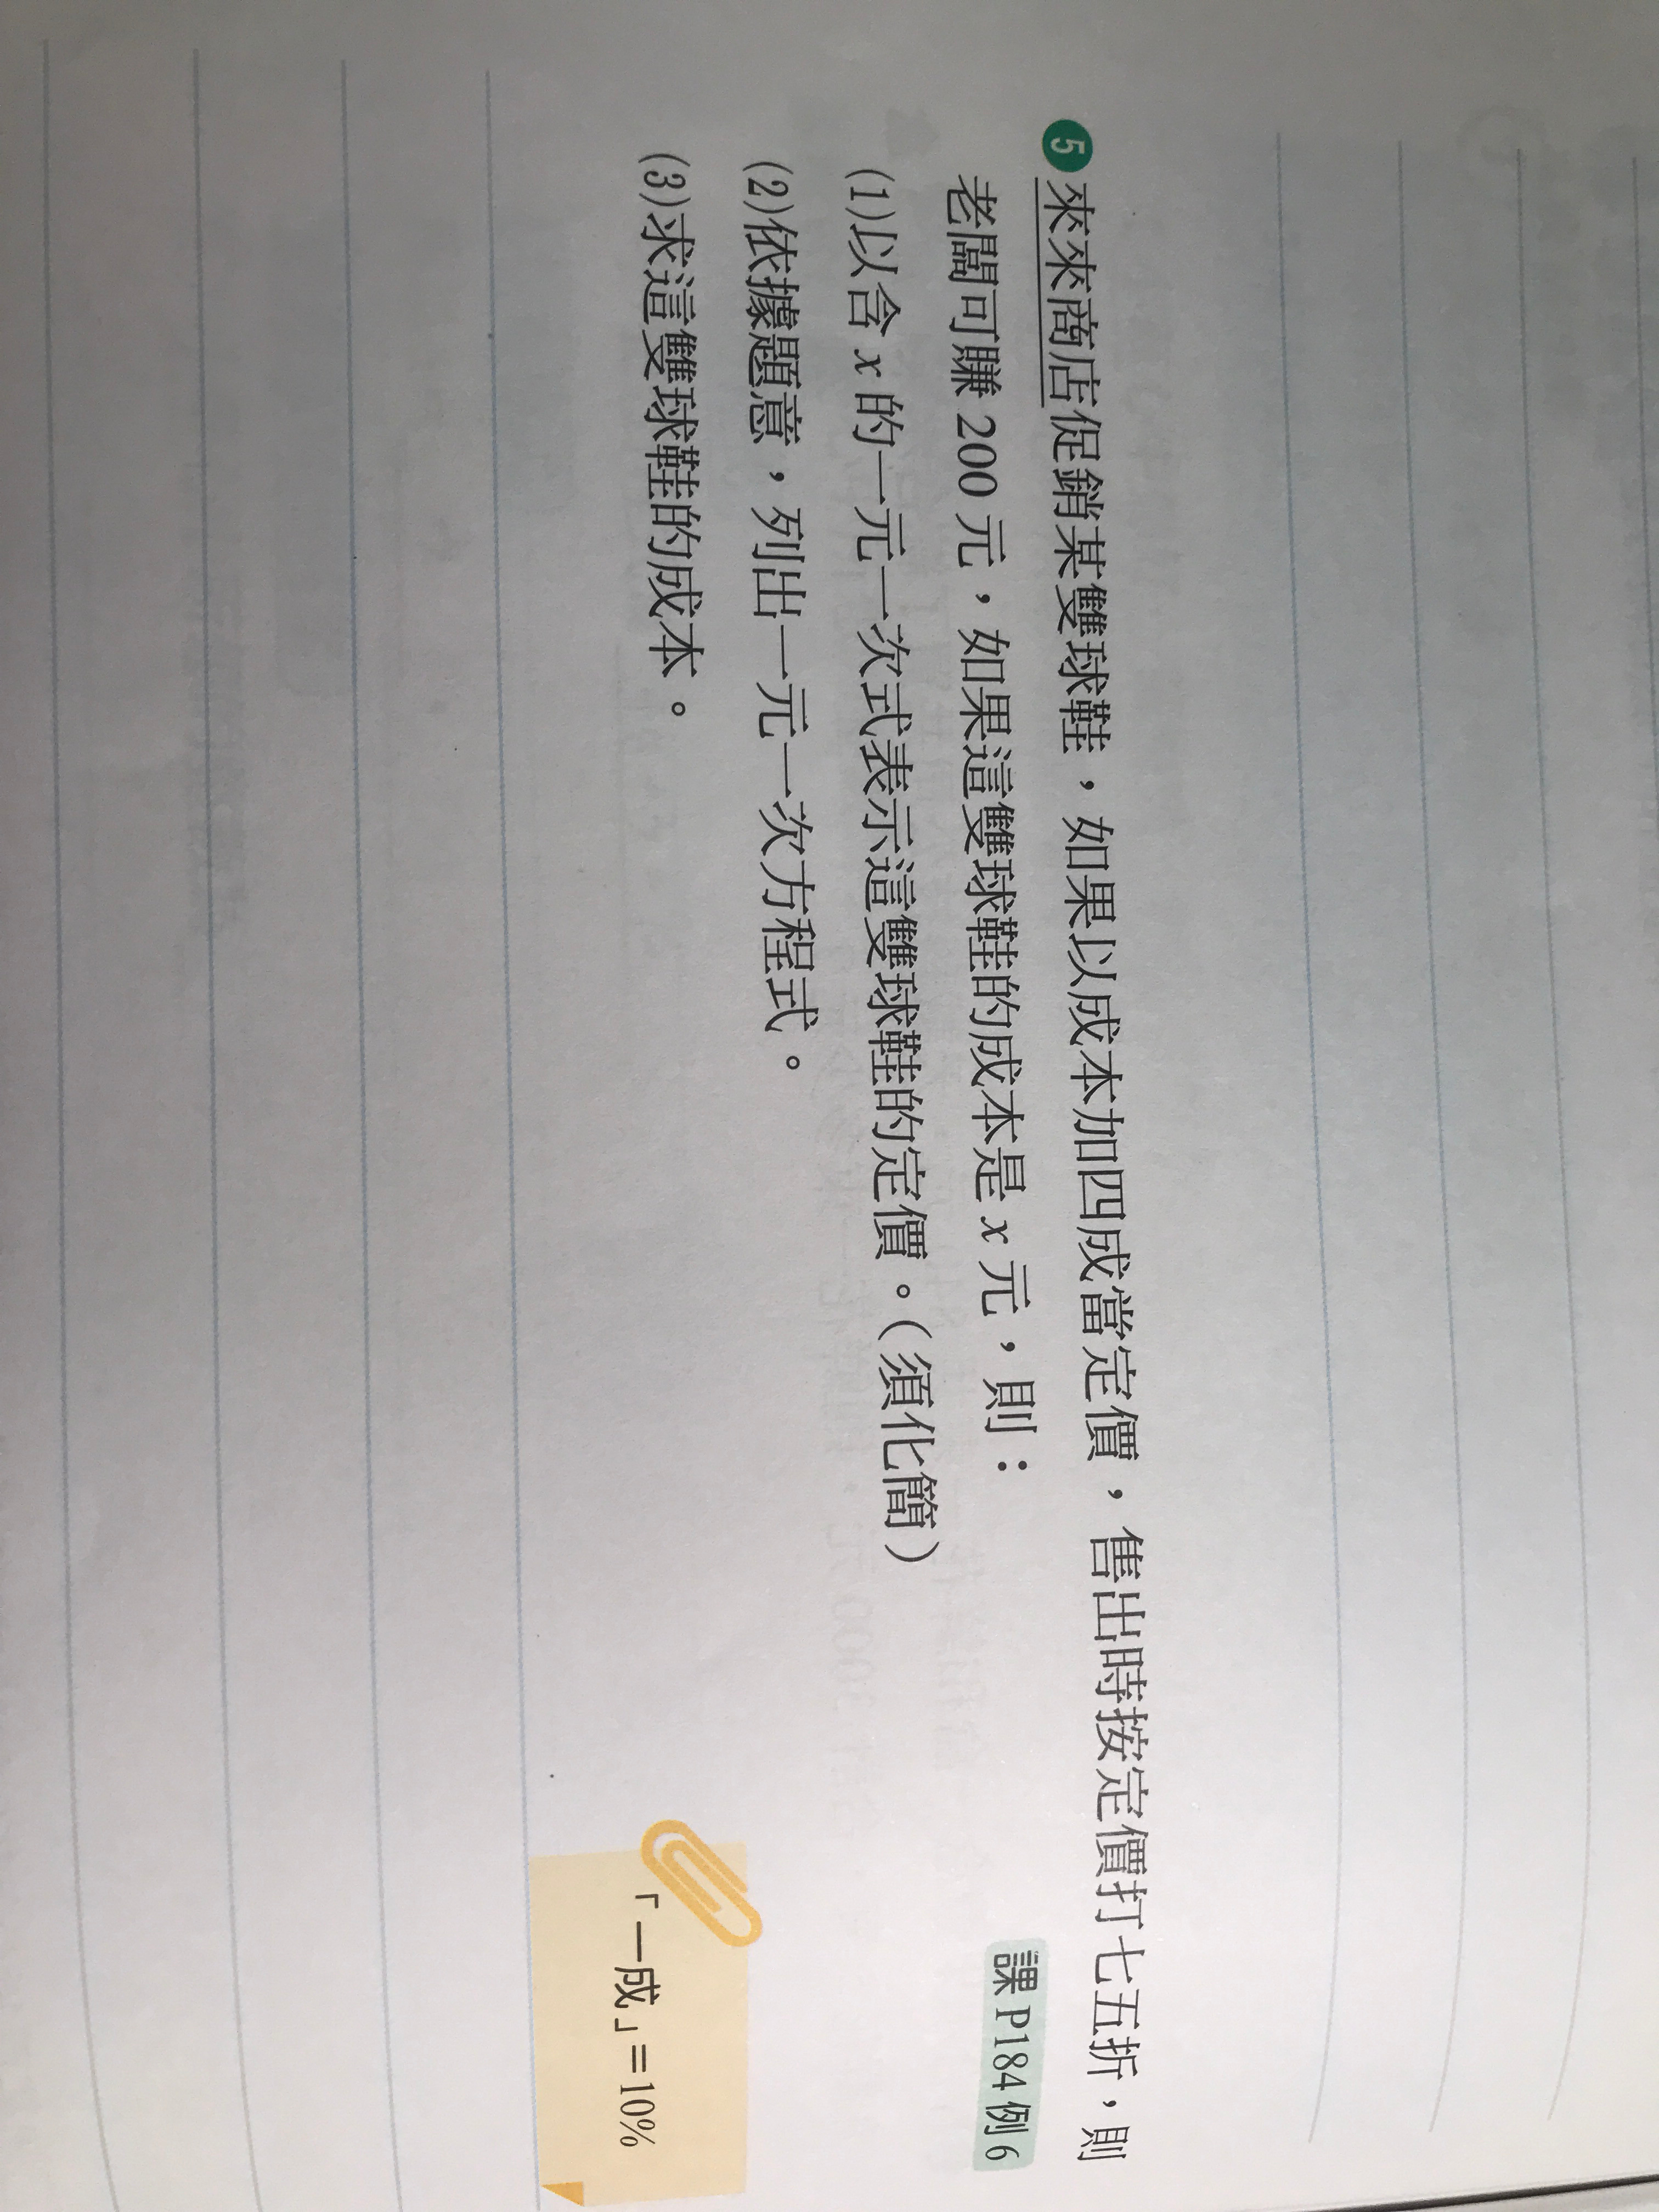 5 來來商店促銷某雙球鞋，如果以成本加四成當定價，售出時按定價打七五折，則
老闆可賺 200 元，如果這雙球鞋的成本是 x 元，則：
課 P184 例 6
(1)以含 x 的一元一次式表示這雙球鞋的定價。（須化簡）
(2)依據題意，列出一元一次方程式。
(3)求這雙球鞋的成本。
「一成」=10%